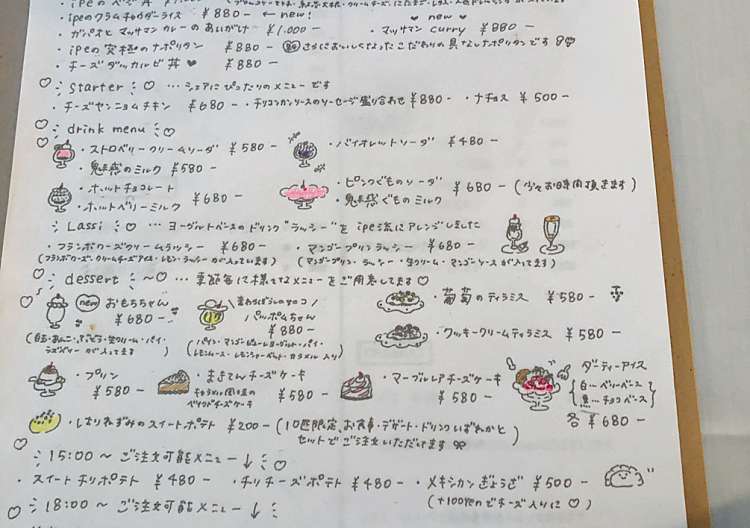 ipeのクラムチャウダーライス ¥880- ← new!
・ガパオとマッサマンカレーのあいがけ ¥1,000-
new
・マッサマン curry ¥880-
・ipeの究極のナポリタン ¥880- さらにおいしくなったこだわりの具なしナポリタンです
・チーズダッカルビ丼 ♥ ¥880-
starter ♡ … シェアにぴったりのメニューです
・チーズヤンニョムチキン ¥680- ・チリコンカンソースのソーセージ盛り合わせ ¥880- ・ナチョス ¥500-
drink menu
・ストロベリークリームソーダ ¥580-
・バイオレットソーダ ¥480-
・魅惑のミルク ¥580-
・ホットチョコレート
・ホットベリーミルク
¥680-
・ピンクぐものソーダ
・魅惑ぐものミルク
¥680- (少々お時間頂きます)
Lassi ♡ … ヨーグルトベースのドリンク"ラッシー"をipe流にアレンジしました
・フランボワーズクリームラッシー ¥680-
(フランボワーズ・クリームチーズアイス・レモン・ラッシーが入っています)
・マンゴープリンラッシー ¥680-
(マンゴープリン・ラッシー・生クリーム・マンゴーソースが入ってます)
dessert ~♡ … 季節毎に様々なメニューをご用意してます♡
new おもちちゃん
¥680-
パイ・
ラズベリーが入ってます)
パルポムちゃん
¥880-
(パイン・マンゴーピューレヨーグルト・パイ・
レモンムース・レモンシャーベット・カラメル入り)
・葡萄のティラミス ¥580-
・クッキークリームティラミス ¥580-
・プリン
¥580-
チーズケーキ
ベイクドチーズケーキ
¥580-
・マーブルレアチーズケーキ
¥580-
ダーティーアイス
白…ベリーベース
黒…チョコベース
各 ¥680-
・しわりねずみのスイートポテト ¥200- (10匹限定、お食事・デザート・ドリンクいずれかと
セットでご注文いただけます)
15:00~ ご注文可能メニュー ↓
・スイートチリポテト ¥480- ・チリチーズポテト ¥480- ・メキシカンぎょうざ ¥500-
(+100yenでチーズ入りに♡)
18:00~ ご注文可能メニュー ↓